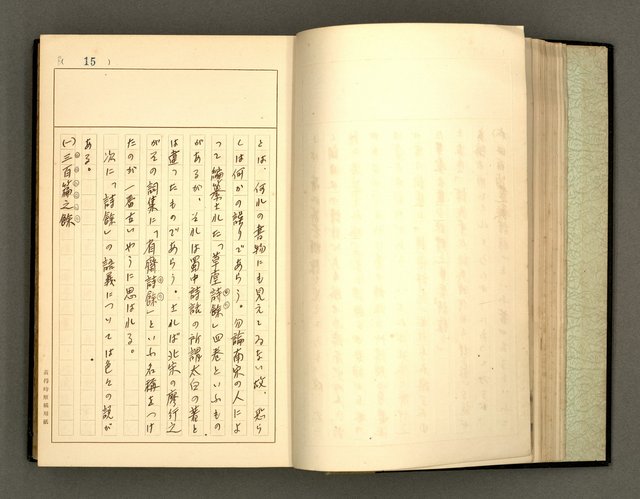 ( 15 )
とは、何れの書物にも見えてゐない故、恐ら
くは何かの誤りであらう。勿論南宋の人によ
つて編纂された「草堂詩餘」四巻といふもの
があるが、それは蜀中詩話の所謂太白の著と
は違つたものであらう。されば北宋の廖行之
がその詞集に「省齋詩餘」といふ名称をつけ
たのが一番古いやうに思はれる。
次に「詩餘」の語義については色々の説が
ある。
(一)三百篇之餘
黃得時原稿用紙